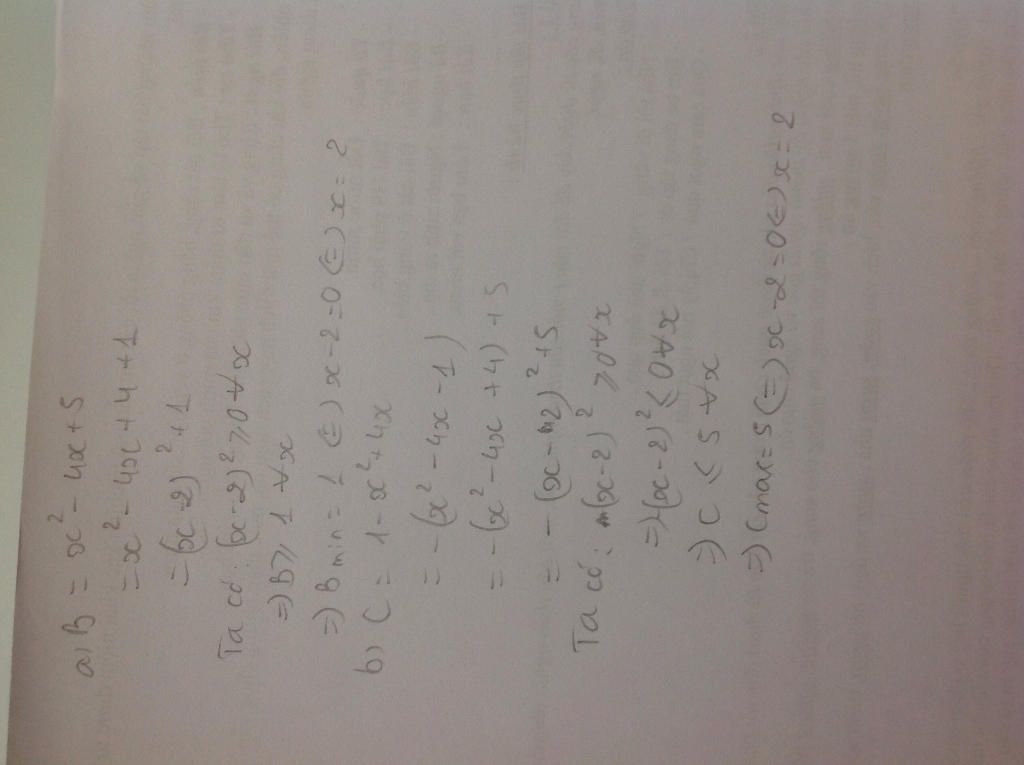 a) B = x² - 4x + 5
= x² - 4x + 4 + 1
= (x - 2)² + 1
Ta có: (x - 2)² ⩾ 0 ∀ x
=) B ⩾ 1 ∀ x
=) Bmin = 1 (=) x - 2 = 0 (=) x = 2
b) C = 1 - x² + 4x
= - (x² - 4x - 1)
= - (x² - 4x + 4) + 5
= - (x - 2)² + 5
Ta có: (x - 2)² ⩾ 0 ∀ x
=) - (x - 2)² ⩽ 0 ∀ x
=) C ⩽ 5 ∀ x
=) Cmax = 5 (=) x - 2 = 0 (=) x = 2